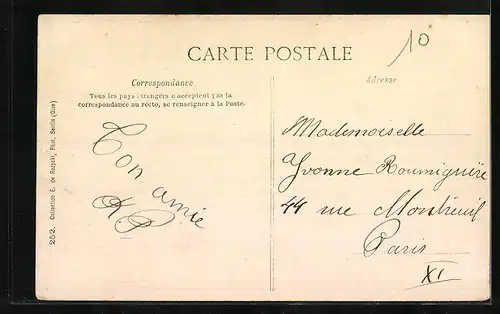 CARTE POSTALE
10
Correspondance
Adresse
Tous les pays étrangers n'acceptent pas la
correspondance au recto, se renseigner à la Poste.
Ton amie
Mademoiselle
Yvonne Roumiguière
44 rue Montreuil
Paris
XI
252. Collection E. de Rozycki, Phot. Senlis (Oise)